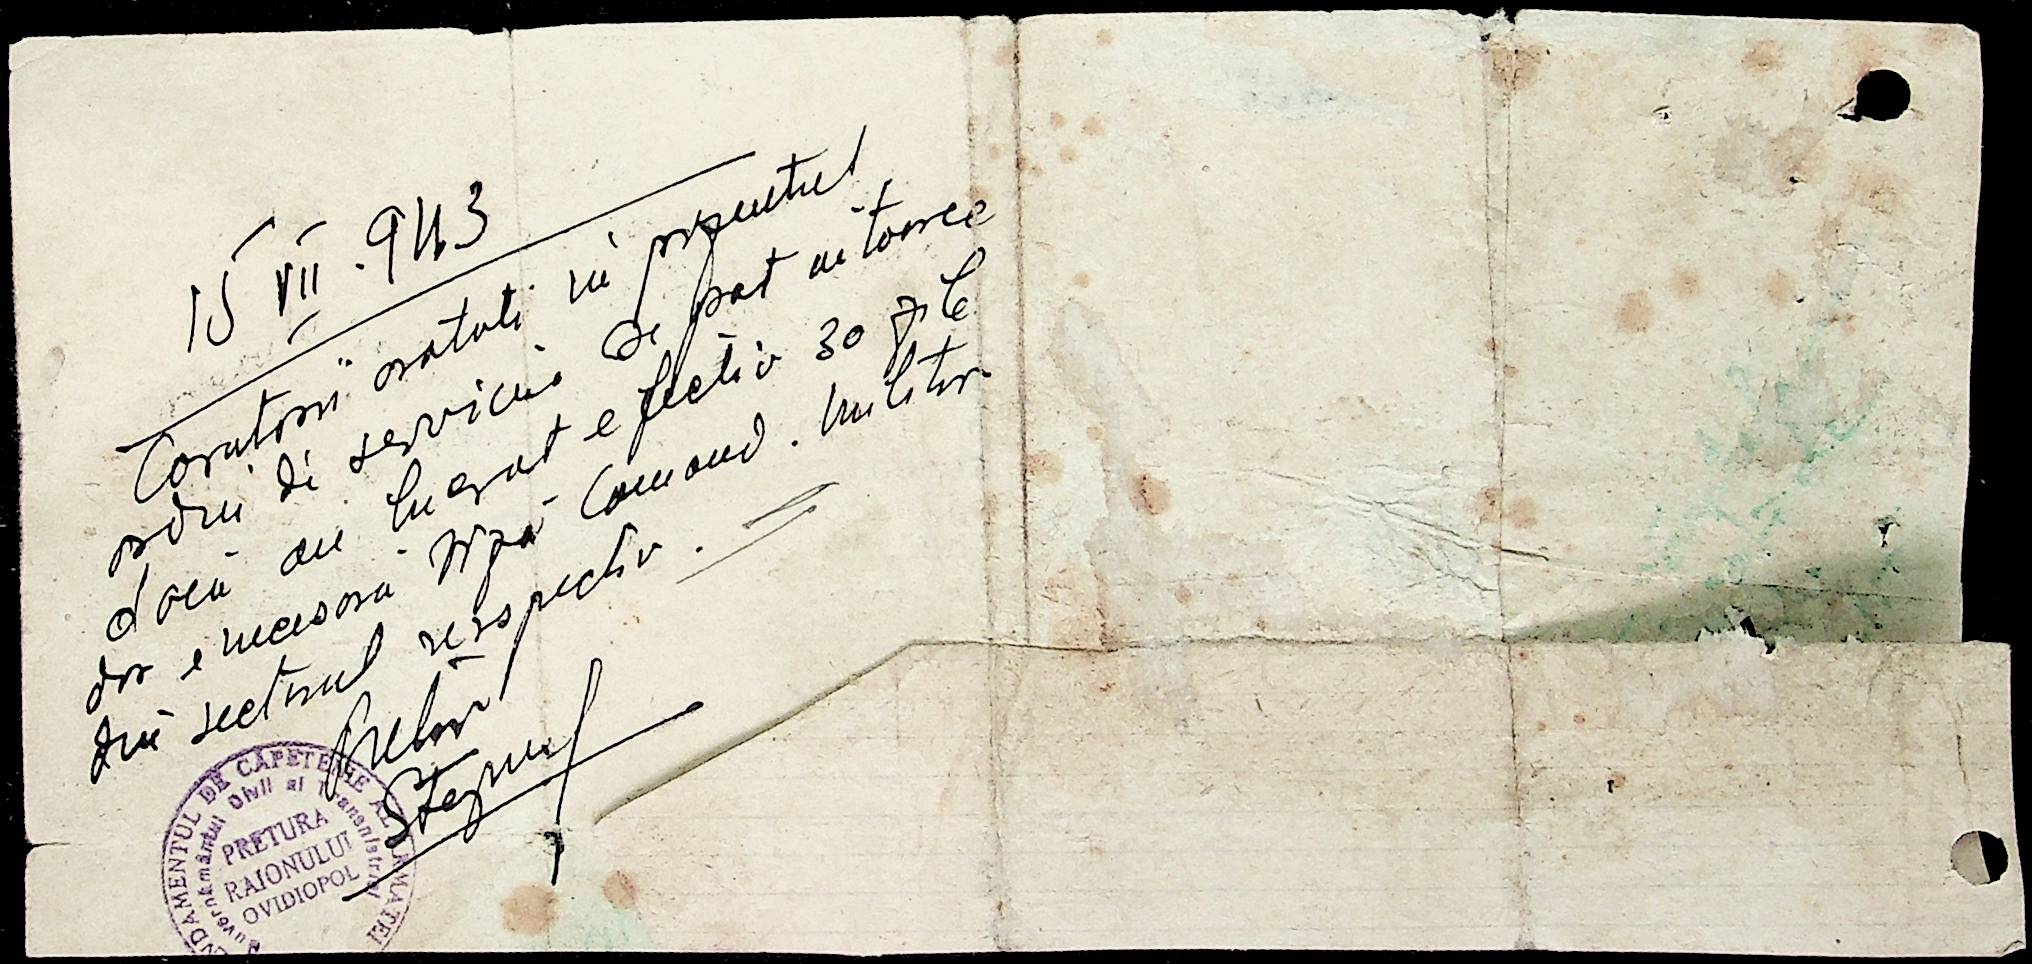 15 VII .943
Coratorii aratati in prezentul
ordin di serviciu se pot intoarce
daca au lucrat efectiv 30 zile
dar e necesara si
Comand. militar
din sectorul respectiv.
Pretor
COMANDAMENTUL DE CAPETENIE AL ARMATEI
Guvernământul Civil al Transnistriei
PRETURA
RAIONULUI
OVIDIOPOL